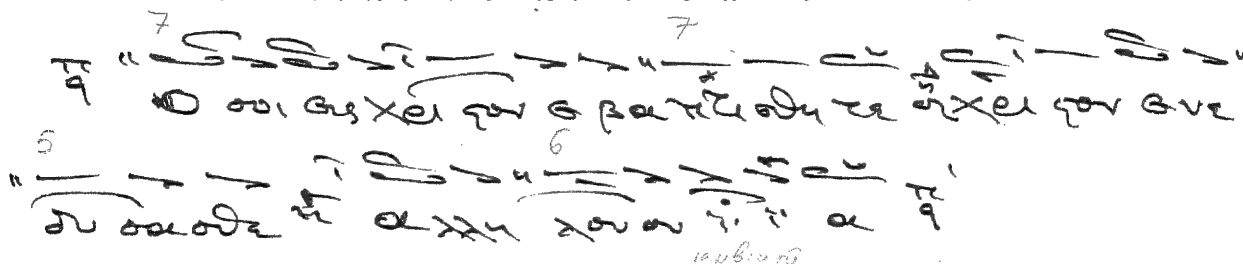 7 7
Ο σοι εις Χρι στον ε βα πτι σθη τε Χρι στον ε νε
5 6
δυ σα σθε α λλη λου ου ι ι α